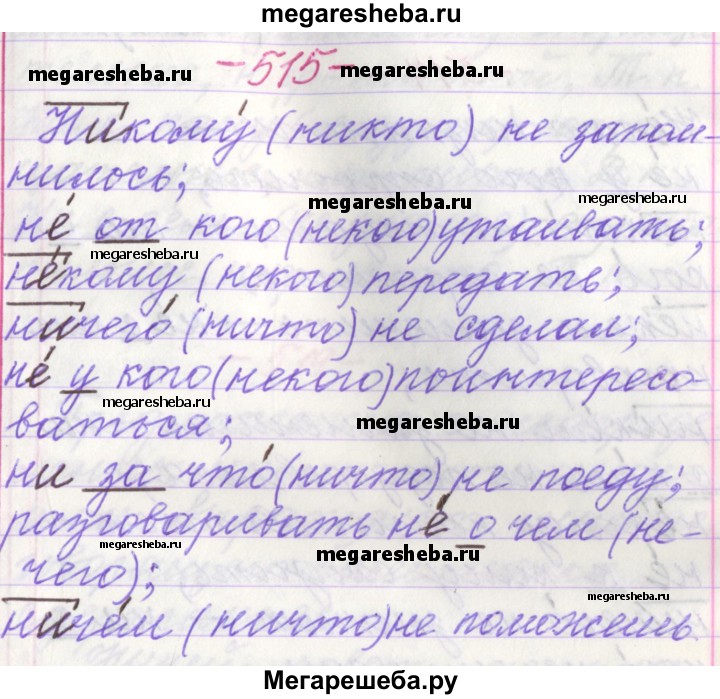 megaresheba.ru
-515-
megaresheba.ru megaresheba.ru
Никому́ (никто) не запом-
нилось;
megaresheba.ru megaresheba.ru
не́ от кого (некого) утаивать;
megaresheba.ru
не́кому (некого) передать;
ничего́ (ничто) не сделал;
megaresheba.ru
не́ у кого (некого) поинтересо-
megaresheba.ru
ваться; megaresheba.ru
ни за что́ (ничто) не поеду;
разговаривать не́ о чем (не-
megaresheba.ru megaresheba.ru
чего);
megaresheba.ru
ниче́м (ничто) не поможешь
Мегарешеба.ру